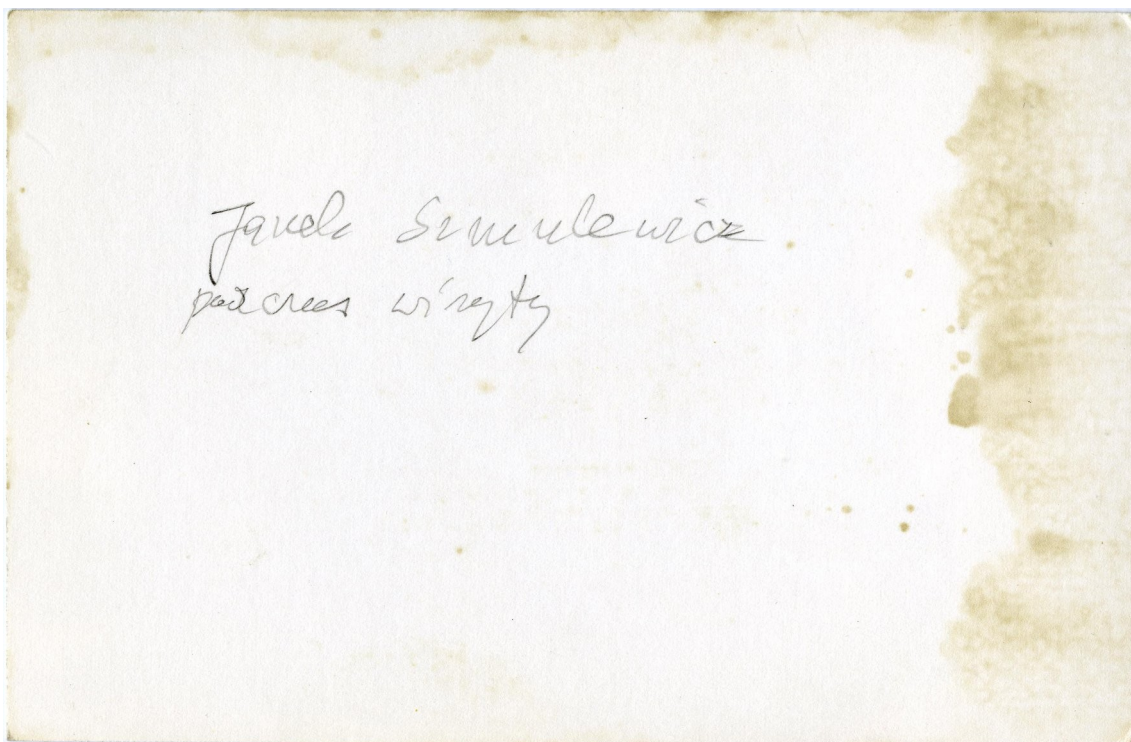 Janek Szmulewicz
podczas wizyty